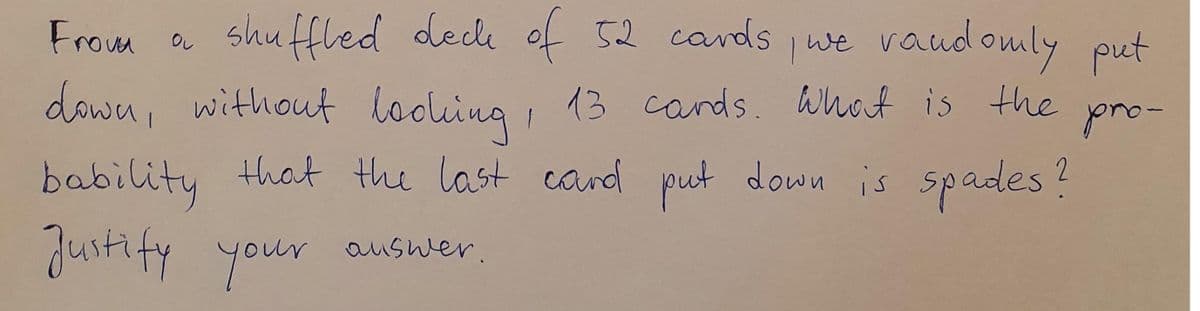 From a shuffled deck of 52 cards, we randomly put
down, without looking, 13 cards. What is the pro-
bability that the last card put down is spades?
Justify your answer.